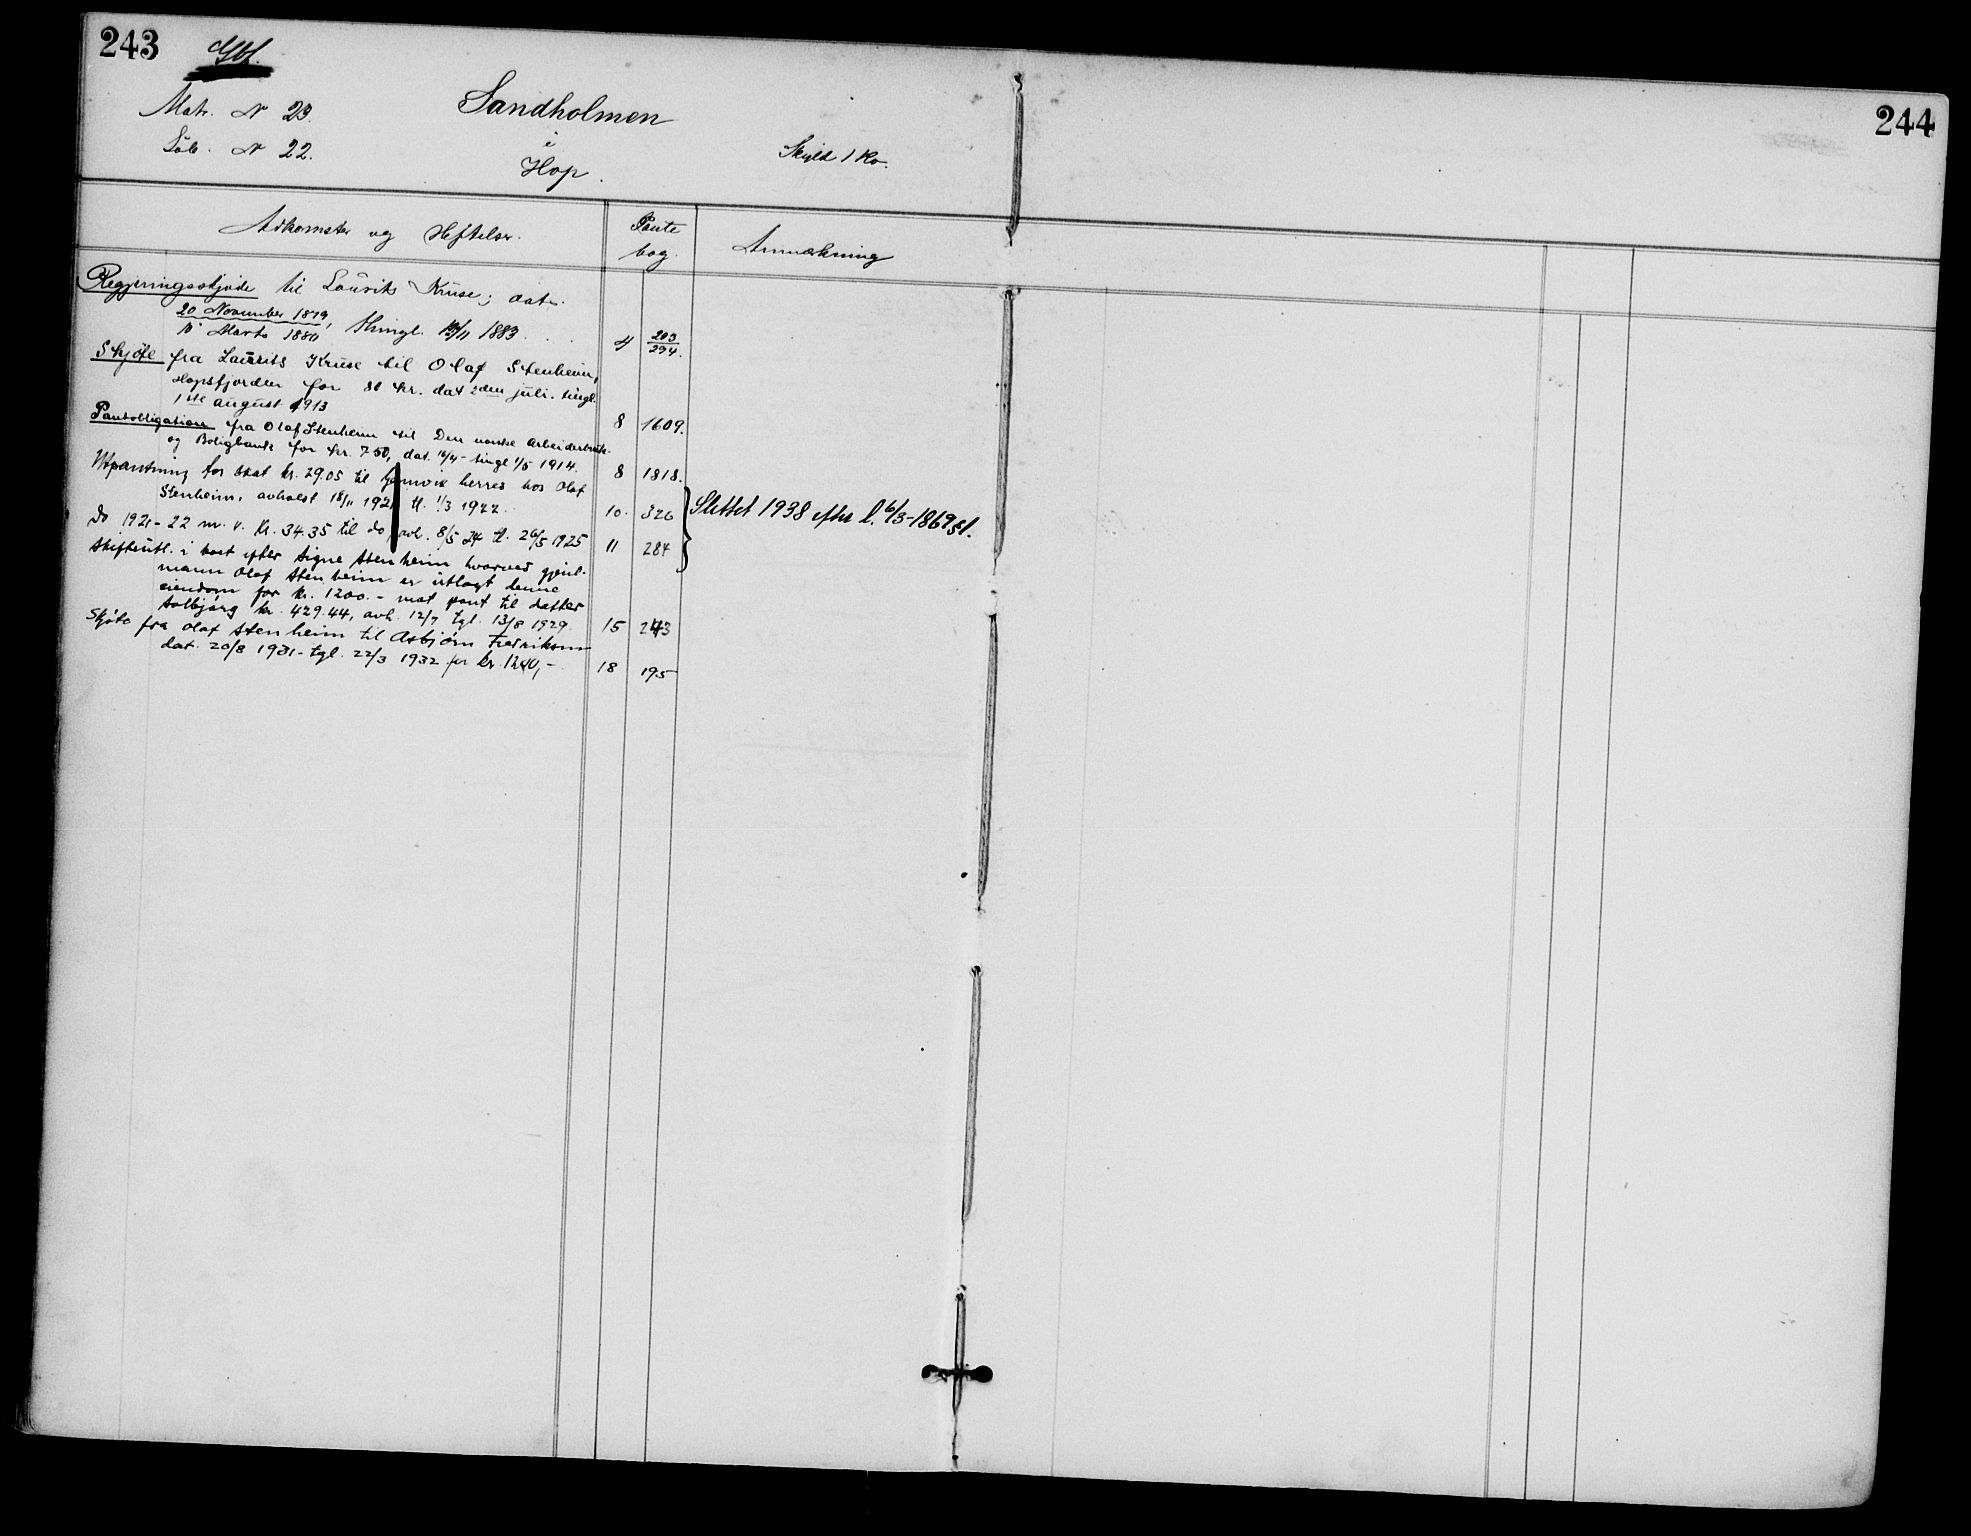 243
244
Matr. N 23.
Löb. N 22.
Sandholmen
i
Hop.
Skyld 1 Kr.
Adkomster og Heftelser.
Pante
bog.
Anmærkning
Regjeringsskjøde til Laurits Kruse; dat.
20 November 1879,
Marts 1880 thingl. 1883 4 293/294.
Skjøte fra Laurits Kruse til Olaf Stenheim,
Hopsfjorden for 80 kr. dat 2den juli. tingl.
1ste august 1913 8 1609.
Pantobligation fra Olaf Stenheim til Den norske Arbeiderbruk-
og Boligbank for kr. 750, dat. 16/4 - tingl 1/5 1914. 8 1818.
Utpantning for skat kr. 29.05 til Gamvik herred hos Olaf
Stenheim, avholdt 18/11 1921 tl. 1/3 1922. 10. 326
Do 1921-22 m. v. kr. 34.35 til do, avh. 8/5 24 tl. 26/5 1925 11 284
Slettet 1938 efter l. 6/3-1869 §1.
Skifteutl. i boet efter Signe Stenheim hvorved gjenl.
mann Olaf Stenheim er utlagt denne
eiendom for kr. 1200.- mot pant til datter
Solbjørg kr. 429.44, avh. 12/7 tgl. 13/8 1929. 15 243
Skjøte fra Olaf Stenheim til Asbjörn Fredriksen
dat. 20/8 1931 - tgl. 22/3 1932 for kr. 1200,- 18 195